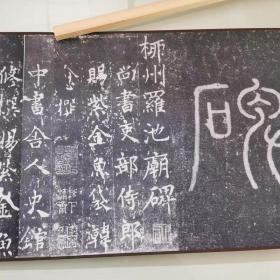 碑
柳州羅池廟碑
尚書吏部侍郎
賜紫金魚袋韓
愈撰
中書舍人史館
修撰賜紫金魚